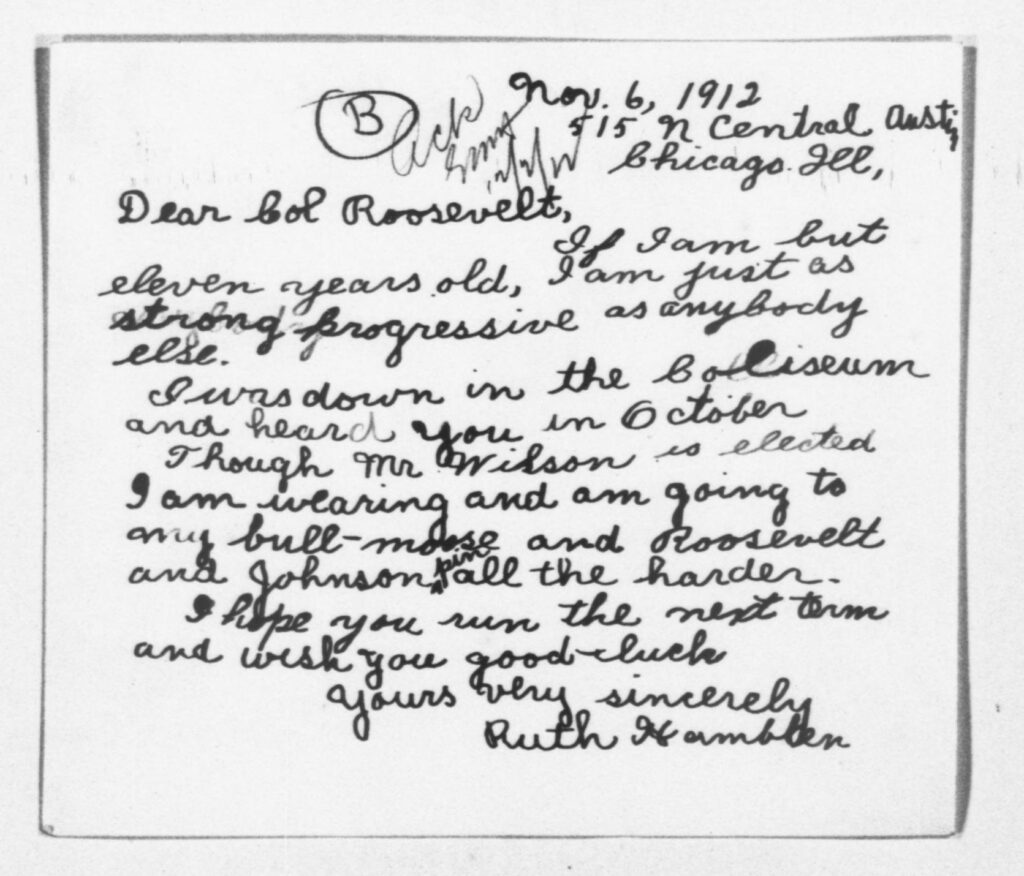 Nov. 6, 1912
B
Ack
515 N Central Austin
Chicago. Ill,
Dear Col Roosevelt,
If I am but
eleven years old, I am just as
strong progressive as anybody
else.
I was down in the Colliseum
and heard you in October
Though Mr. Wilson is elected
I am wearing and am going to
my bull-moose and Roosevelt
and Johnson pin all the harder.
I hope you run the next term
and wish you good-luck
Yours very sincerely
Ruth Hamblen